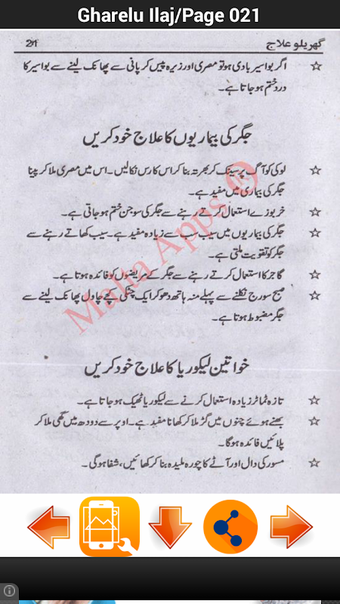 Gharelu Ilaj/Page 021
گھریلو علاج 21
☆ اگر بواسیر بادی ہو تو مصری اور زیرہ پیس کر پانی سے پھانک لینے سے بواسیر کا
درد ختم ہو جاتا ہے۔
جگر کی بیماریوں کا علاج خود کریں
☆ لوکی کو آگ پر سینک کر بھرتہ بنا کر اس کا رس نکالیں۔ اس میں مصری ملا کر پینا
جگر کی بیماری میں مفید ہے۔
☆ خربوزے استعمال کرتے رہنے سے جگر کی سوجن ختم ہو جاتی ہے۔
☆ جگر کی بیماریوں میں سیب سب سے زیادہ مفید ہے۔ سیب کھاتے رہنے سے
جگر کو تقویت ملتی ہے۔
☆ گاجر کا استعمال کرتے رہنے سے جگر کے مریضوں کو فائدہ ہوتا ہے۔
☆ صبح سورج نکلنے سے پہلے منہ ہاتھ دھو کر ایک چٹکی کچے چاول پھانک لینے سے
جگر مضبوط ہوتا ہے۔
Maha Apps
خواتین لیکوریا کا علاج خود کریں
☆ تازہ ٹماٹر زیادہ استعمال کرنے سے لیکوریا ٹھیک ہو جاتا ہے۔
☆ بھنے ہوئے چنوں میں گڑ ملا کر کھانا مفید ہے۔ اوپر سے دودھ میں گھی ملا کر
پلائیں فائدہ ہوگا۔
☆ مسور کی دال اور آٹے کا چورہ ملیدہ بنا کر کھائیں، شفا ہوگی۔